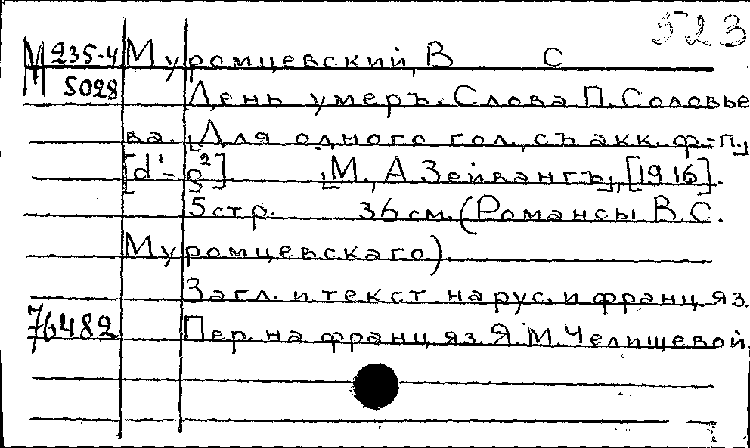 523
М 235-4 Муромцевский, В С
5028 День умеръ. Слова П. Соловье
ва. [Для одного гол. съ акк. ф.-п.,
[d'-g²]. [М., А Зейвангъ], [1916].
5 стр. 36 см. (Романсы В.С.
Муромцевскаго).
Загл. и текст на рус. и франц яз.
76482 Пер. на франц яз. Я.М. Челищевой.